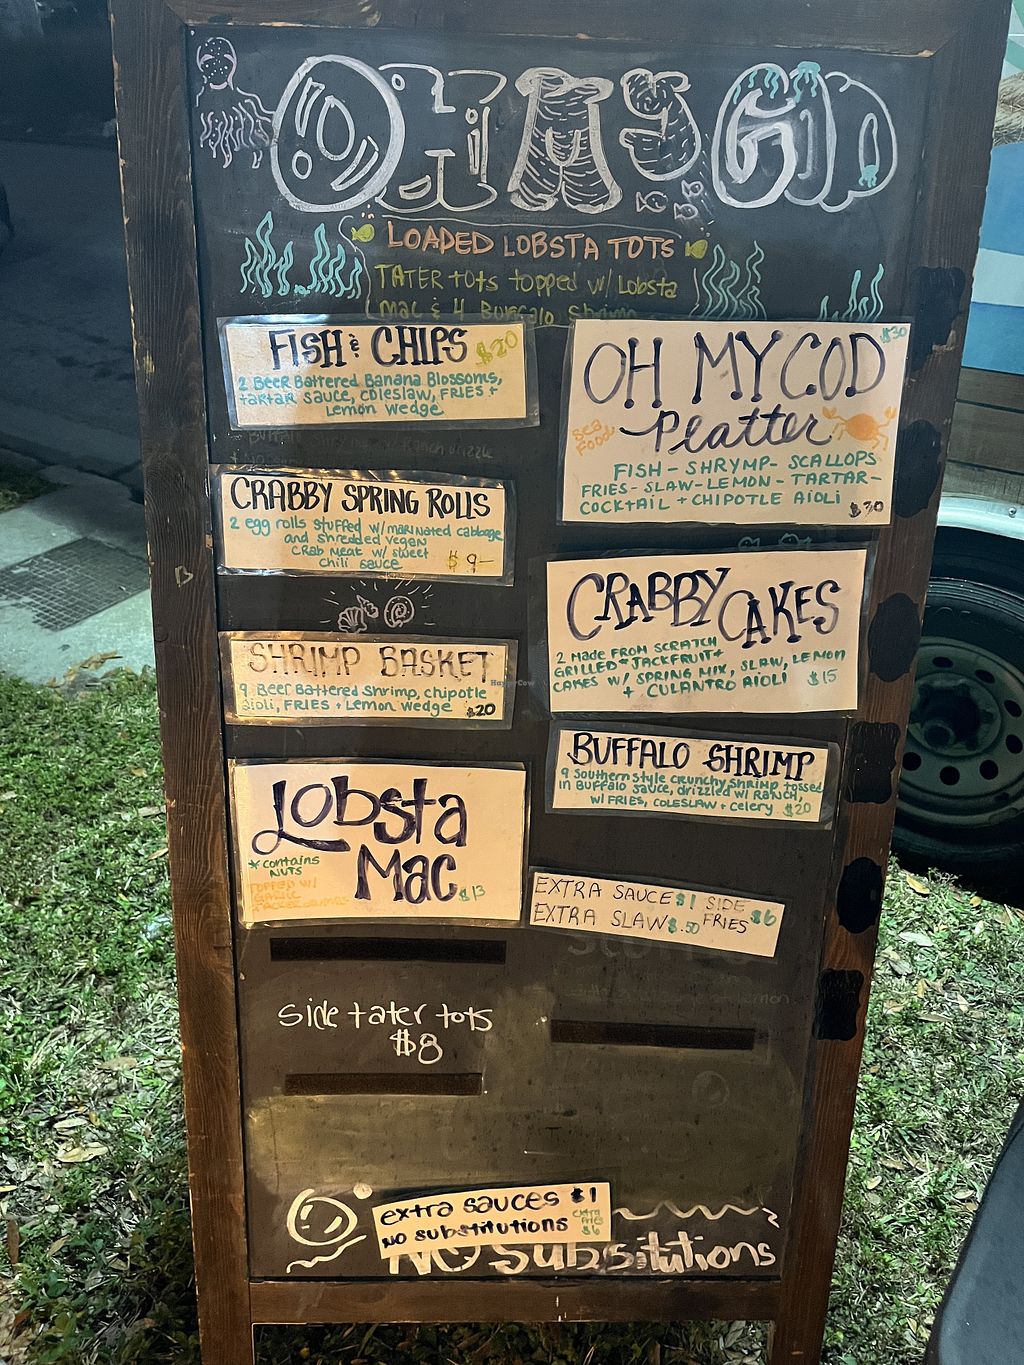 OH MY COD
LOADED LOBSTA TOTS
TATER tots topped w/ Lobsta
mac & 4 Buffalo Shrimp
FISH & CHIPS $20
2 Beer Battered Banana Blossoms,
tartar sauce, coleslaw, FRIES +
Lemon wedge
w/ Ranch drizzle
CRABBY SPRING ROLLS
2 egg rolls stuffed w/ marinated cabbage
and shredded vegan
crab meat w/ sweet
chili sauce $9-
SHRIMP BASKET
9 Beer Battered Shrimp, chipotle
aioli, FRIES + Lemon wedge $20
Lobsta
Mac $13
*contains
NUTS
TOPPED W/
OH MY COD $30
Platter
Sea
Food
FISH - SHRYMP - SCALLOPS
FRIES - SLAW - LEMON - TARTAR -
COCKTAIL + CHIPOTLE AIOLI
$30
CRABBY CAKES
2 MADE FROM SCRATCH
GRILLED *JACKFRUIT*
CAKES W/ SPRING MIX, SLAW, LEMON
+ CULANTRO AIOLI $15
BUFFALO SHRIMP
9 Southern style crunchy shrimp tossed
in Buffalo sauce, drizzled w/ Ranch,
w/ FRIES, COLESLAW + celery $20
EXTRA SAUCE $1 SIDE
FRIES $6
EXTRA SLAW $.50
side tater tots
$8
extra sauces $1
NO substitutions
extra
fries
$6
NO Subsitutions
HappyCow